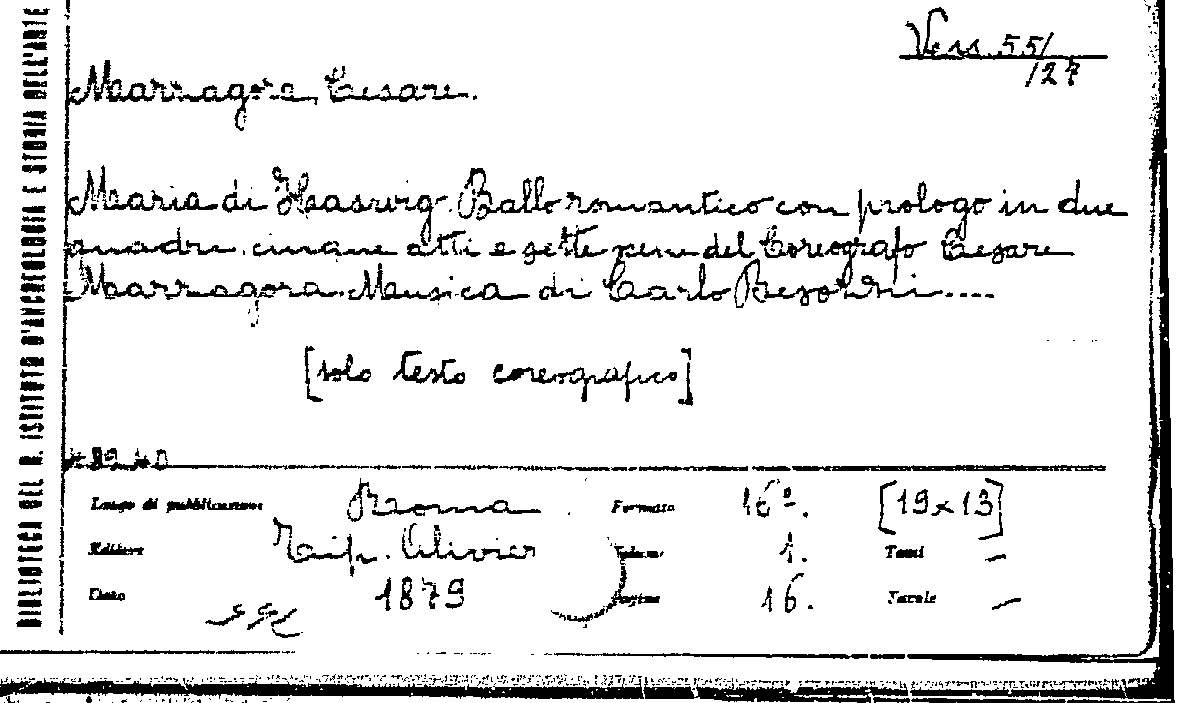 BIBLIOTECA DEL R. ISTITUTO D'ARCHEOLOGIA E STORIA DELL'ARTE
Vess. 55/
/27
Marzagora, Cesare.
Maria di Hasvig. Ballo romantico con prologo in due
quadri cinque atti e sette scene del Coreografo Cesare
Marzagora. Musica di Carlo Besozzi....
[solo testo coreografico]
Luogo di pubblicazione Roma Formato 16º. [19x13]
Editore Tip. Olivier Volume 1. Tomi –
Data 1879 Pagine 16. Tavole –